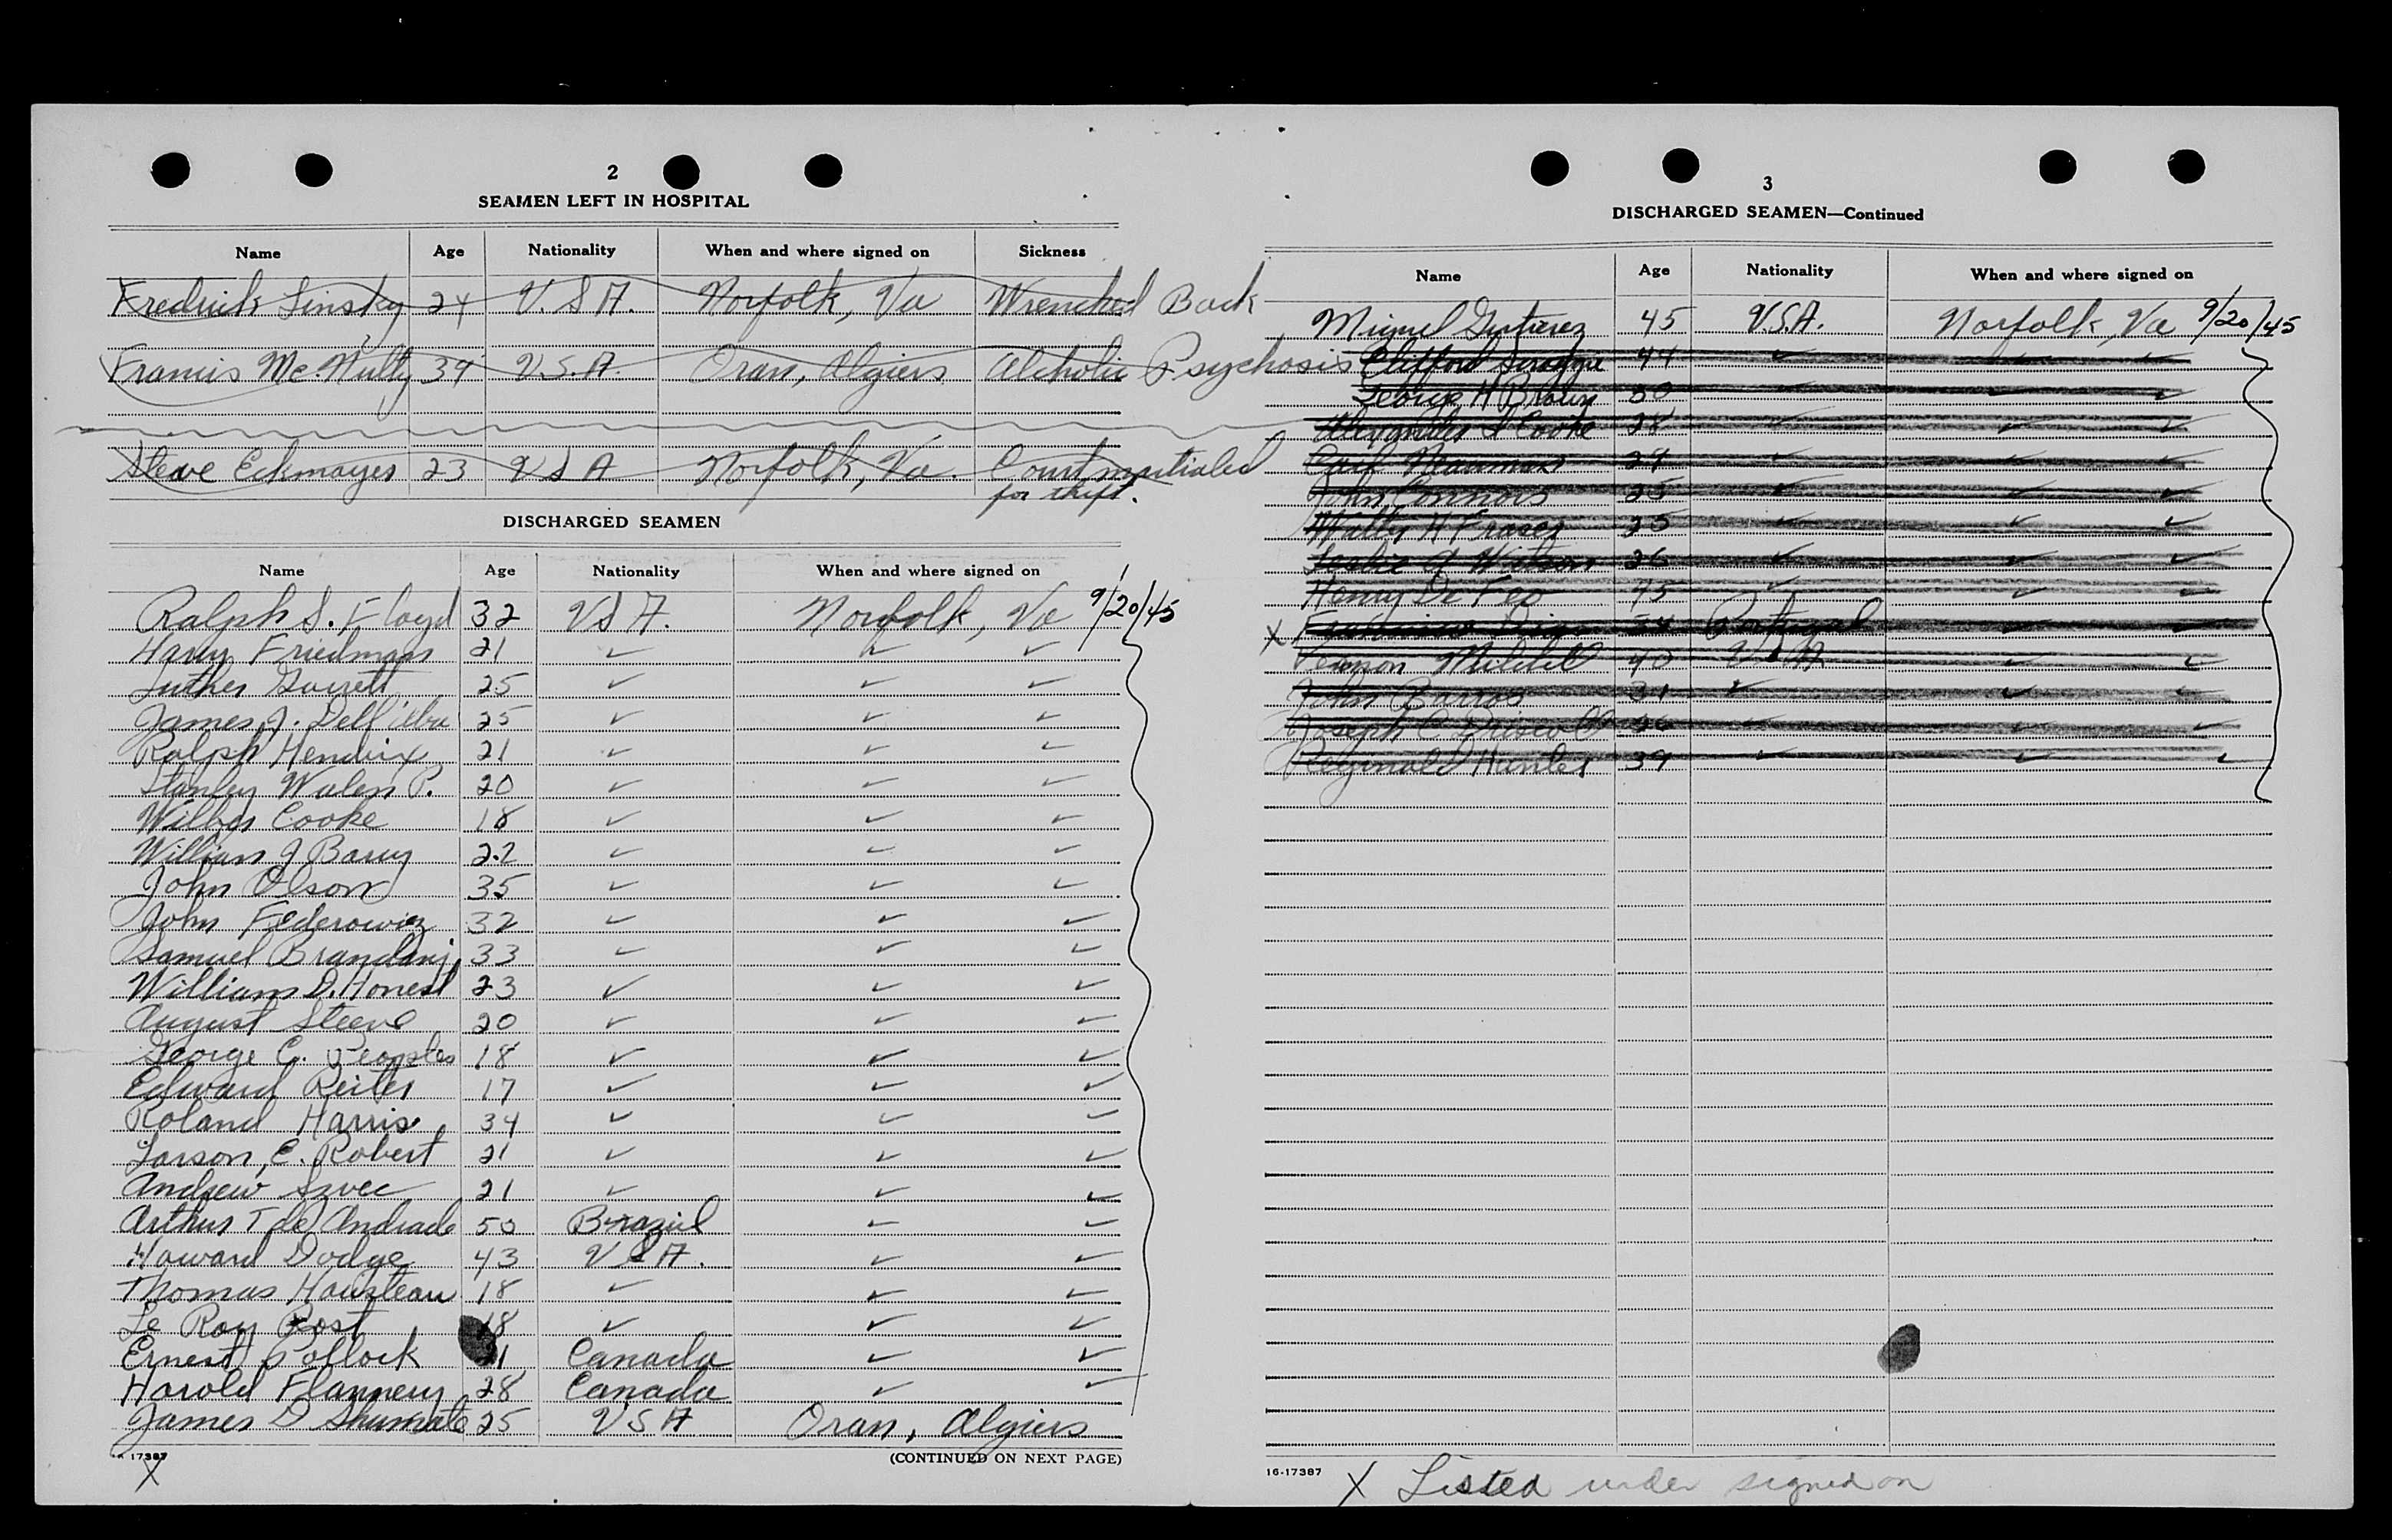 2
SEAMEN LEFT IN HOSPITAL
Name Age Nationality When and where signed on Sickness
Fredrick Linsky 24 U.S.A. Norfolk, Va Wrenched Back
Francis Mc.Nulty 39 U.S.A. Oran, Algiers Alcholic Psychosis
Steve Eckmayes 23 U S A Norfolk, Va. Court martialed
for theft.
DISCHARGED SEAMEN
Name Age Nationality When and where signed on
Ralph S. Floyd 32 U S A. Norfolk, Va 9/20/45
Harry Friedman 21 ✓ ✓ ✓
Luther Garrett 25 ✓ ✓ ✓
James J. 25 ✓ ✓ ✓
Ralph Hendrix 21 ✓ ✓ ✓
Stanley Walen P. 20 ✓ ✓ ✓
Wilbor Cooke 18 ✓ ✓ ✓
William J Barry 22 ✓ ✓ ✓
John Olson 35 ✓ ✓ ✓
John Federowicz 32 ✓ ✓ ✓
Samuel 33 ✓ ✓ ✓
William D. Honest 23 ✓ ✓ ✓
August Steeve 20 ✓ ✓ ✓
George C. Peoples 18 ✓ ✓ ✓
Edward Reiter 17 ✓ ✓ ✓
Roland Harris 34 ✓ ✓ ✓
Larson, E. Robert 21 ✓ ✓ ✓
Andrew Szvec 21 ✓ ✓ ✓
Arthur T de Andrade 50 Brazil ✓ ✓
Howard Dodge 43 U S A. ✓ ✓
Thomas 18 ✓ ✓ ✓
Le Roy Post 18 ✓ ✓ ✓
Ernest Pollock Canada ✓ ✓
Harold Flannery 28 Canada ✓ ✓
James D Shumate 25 U S A Oran, Algiers
17387 (CONTINUED ON NEXT PAGE)
X
3
DISCHARGED SEAMEN—Continued
Name Age Nationality When and where signed on
Miguel Gutierez 45 U.S.A. Norfolk, Va 9/20/45
Clifford 44 ✓ ✓ ✓
George H Brown 50 ✓ ✓ ✓
Cooke 28 ✓ ✓ ✓
Carl Neuman 29 ✓ ✓ ✓
John Connors 25 ✓ ✓ ✓
Walter H Fraser 25 ✓ ✓ ✓
Leslie A Watson 26 ✓ ✓ ✓
Henry De Feo 45 ✓ ✓ ✓
X Portugal ✓ ✓
Vernon Mitchell 40 U S A ✓ ✓
John Barros 31 ✓ ✓ ✓
Joseph C Driscoll 26 ✓ ✓ ✓
Reginald Hunter 39 ✓ ✓ ✓
16-17387
X Listed under signed on